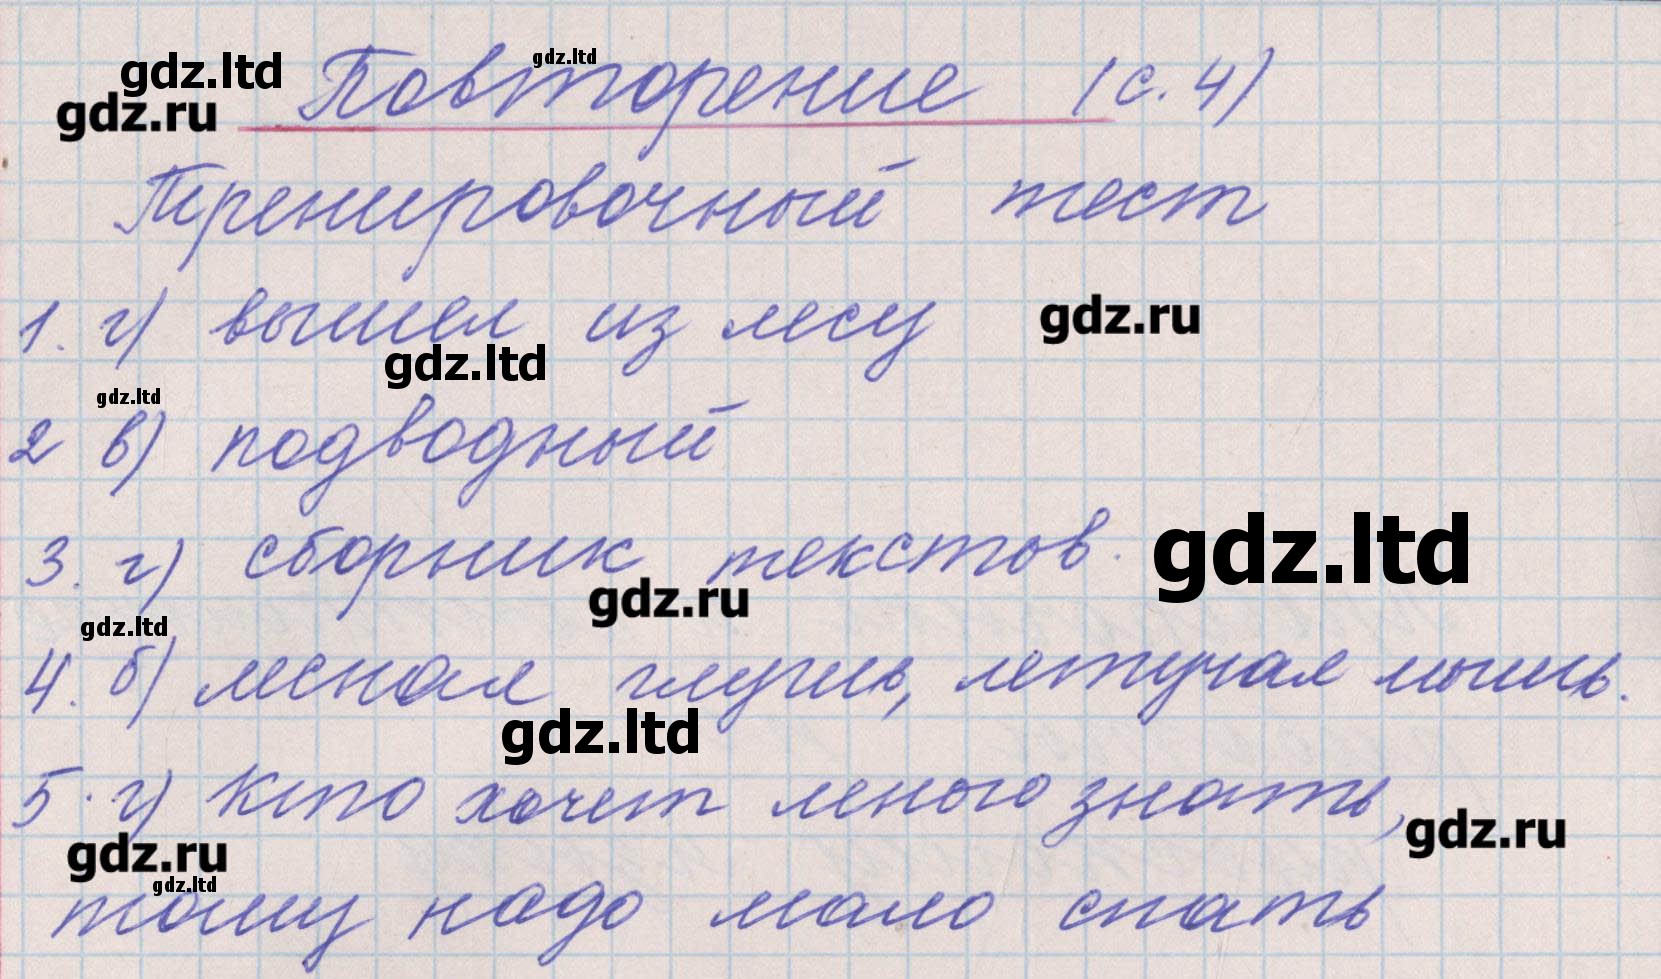 gdz.ltd gdz.ltd
Повторение (с. 4)
gdz.ru
Тренировочный тест
1. г) вышел из лесу gdz.ru
gdz.ltd
gdz.ltd
2 в) подводный
3. г) сборник текстов. gdz.ltd
gdz.ru
gdz.ltd
4. б) лесная глушь, летучая мышь.
gdz.ltd
5. г) Кто хочет много знать,
gdz.ru gdz.ru
gdz.ltd
тому надо мало спать